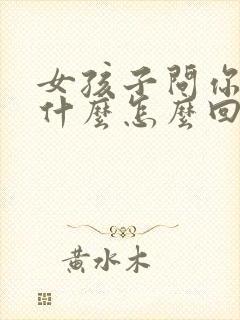 女孩子問你
什麼怎麼回
黃水木